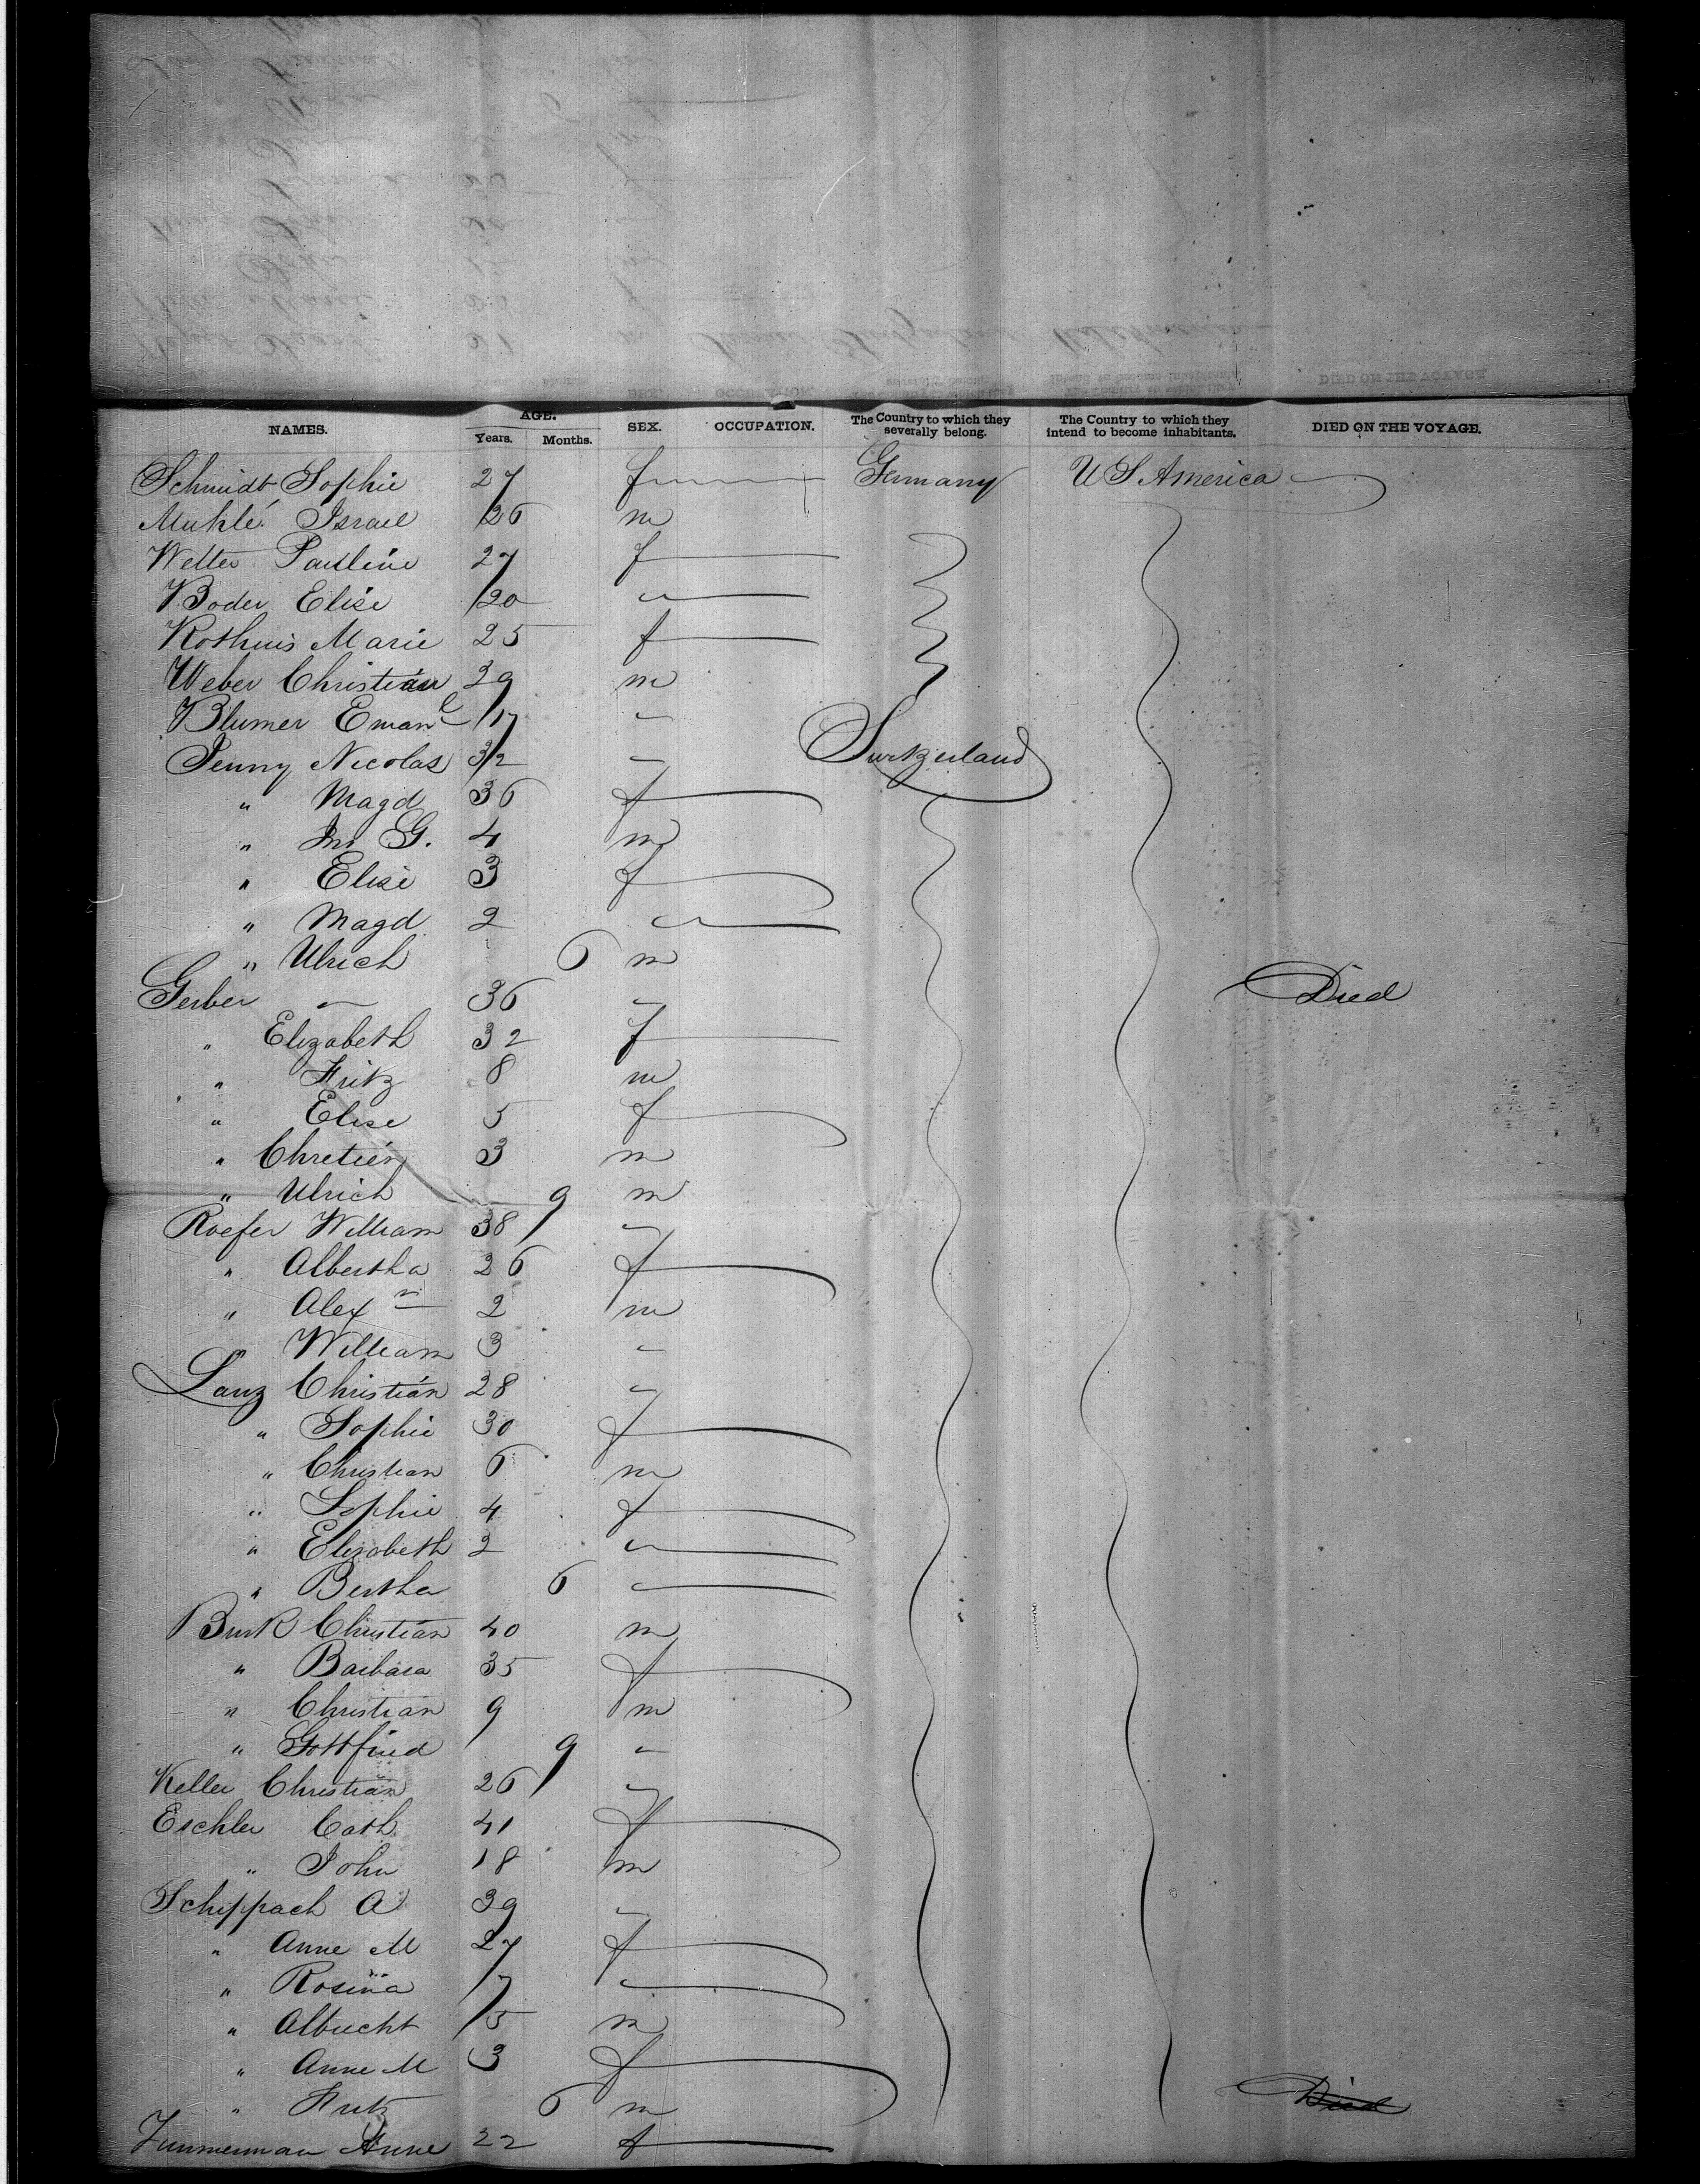 NAMES. AGE. Years. Months. SEX. OCCUPATION. The Country to which they severally belong. The Country to which they intend to become inhabitants. DIED ON THE VOYAGE.
Schmidt Sophie 27 f Germany U S America
Muhlé Israel 26 m
Welter Pauline 27 f
Boder Elise 20 "
Rothuis Marie 25 f
Weber Christian 29 m
Blumer Emanl 17 "
Jenny Nicolas 32 " Switzerland
" Magd 36 f
" Jn G. 4 m
" Elise 3 f
" Magd 2 "
" Ulrich 6 m
Gerber " 36 " Died
" Elizabeth 32 f
" Fritz 8 m
" Elise 5 f
" Chretien 3 m
" Ulrich 9 m
Roefer William 38 "
" Albertha 26 f
" Alexn 2 m
" William 3 "
Lanz Christian 28 "
" Sophie 30 f
" Christian 6 m
" Sophie 4 f
" Elizabeth 2 "
" Bertha 6 "
Burk Christian 40 m
" Barbara 35 f
" Christian 9 m
" Gottfried 9 "
Keller Christian 26 "
Eschler Cath. 41 f
" John 18 m
Schippach A 39 "
" Anne M 27 f
" Rosina 7 "
" Albrecht 5 m
" Anne M 3 f
" Fritz 6 m Died
Zimmerman Anne 22 f